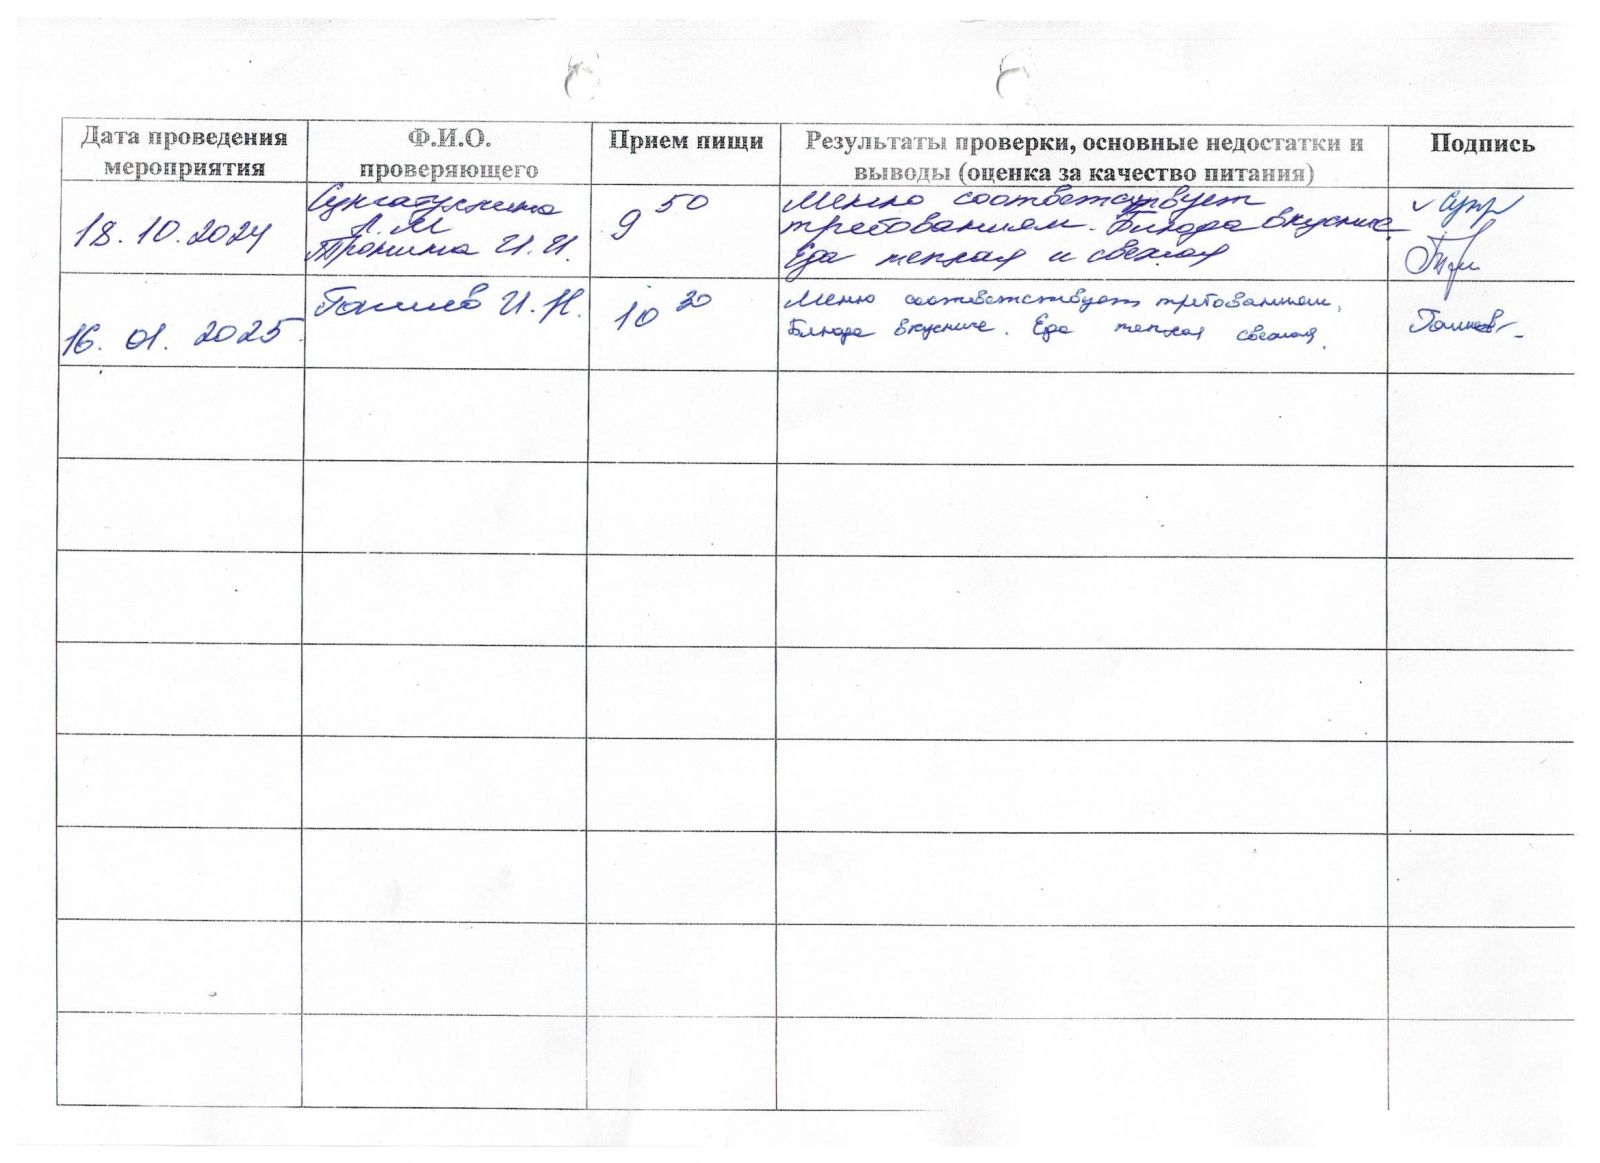 Дата проведения мероприятия
Ф.И.О. проверяющего
Прием пищи
Результаты проверки, основные недостатки и
выводы (оценка за качество питания)
Подпись
18.10.2024
Л. М
Тронина И. И.
9 50
Меню соответствует
требованиям. Блюда вкусные
Еда теплая и свежая
16. 01. 2025.
И. Н.
10 30
Меню соответствует требованиям,
Блюда вкусные. Еда теплая свежая.